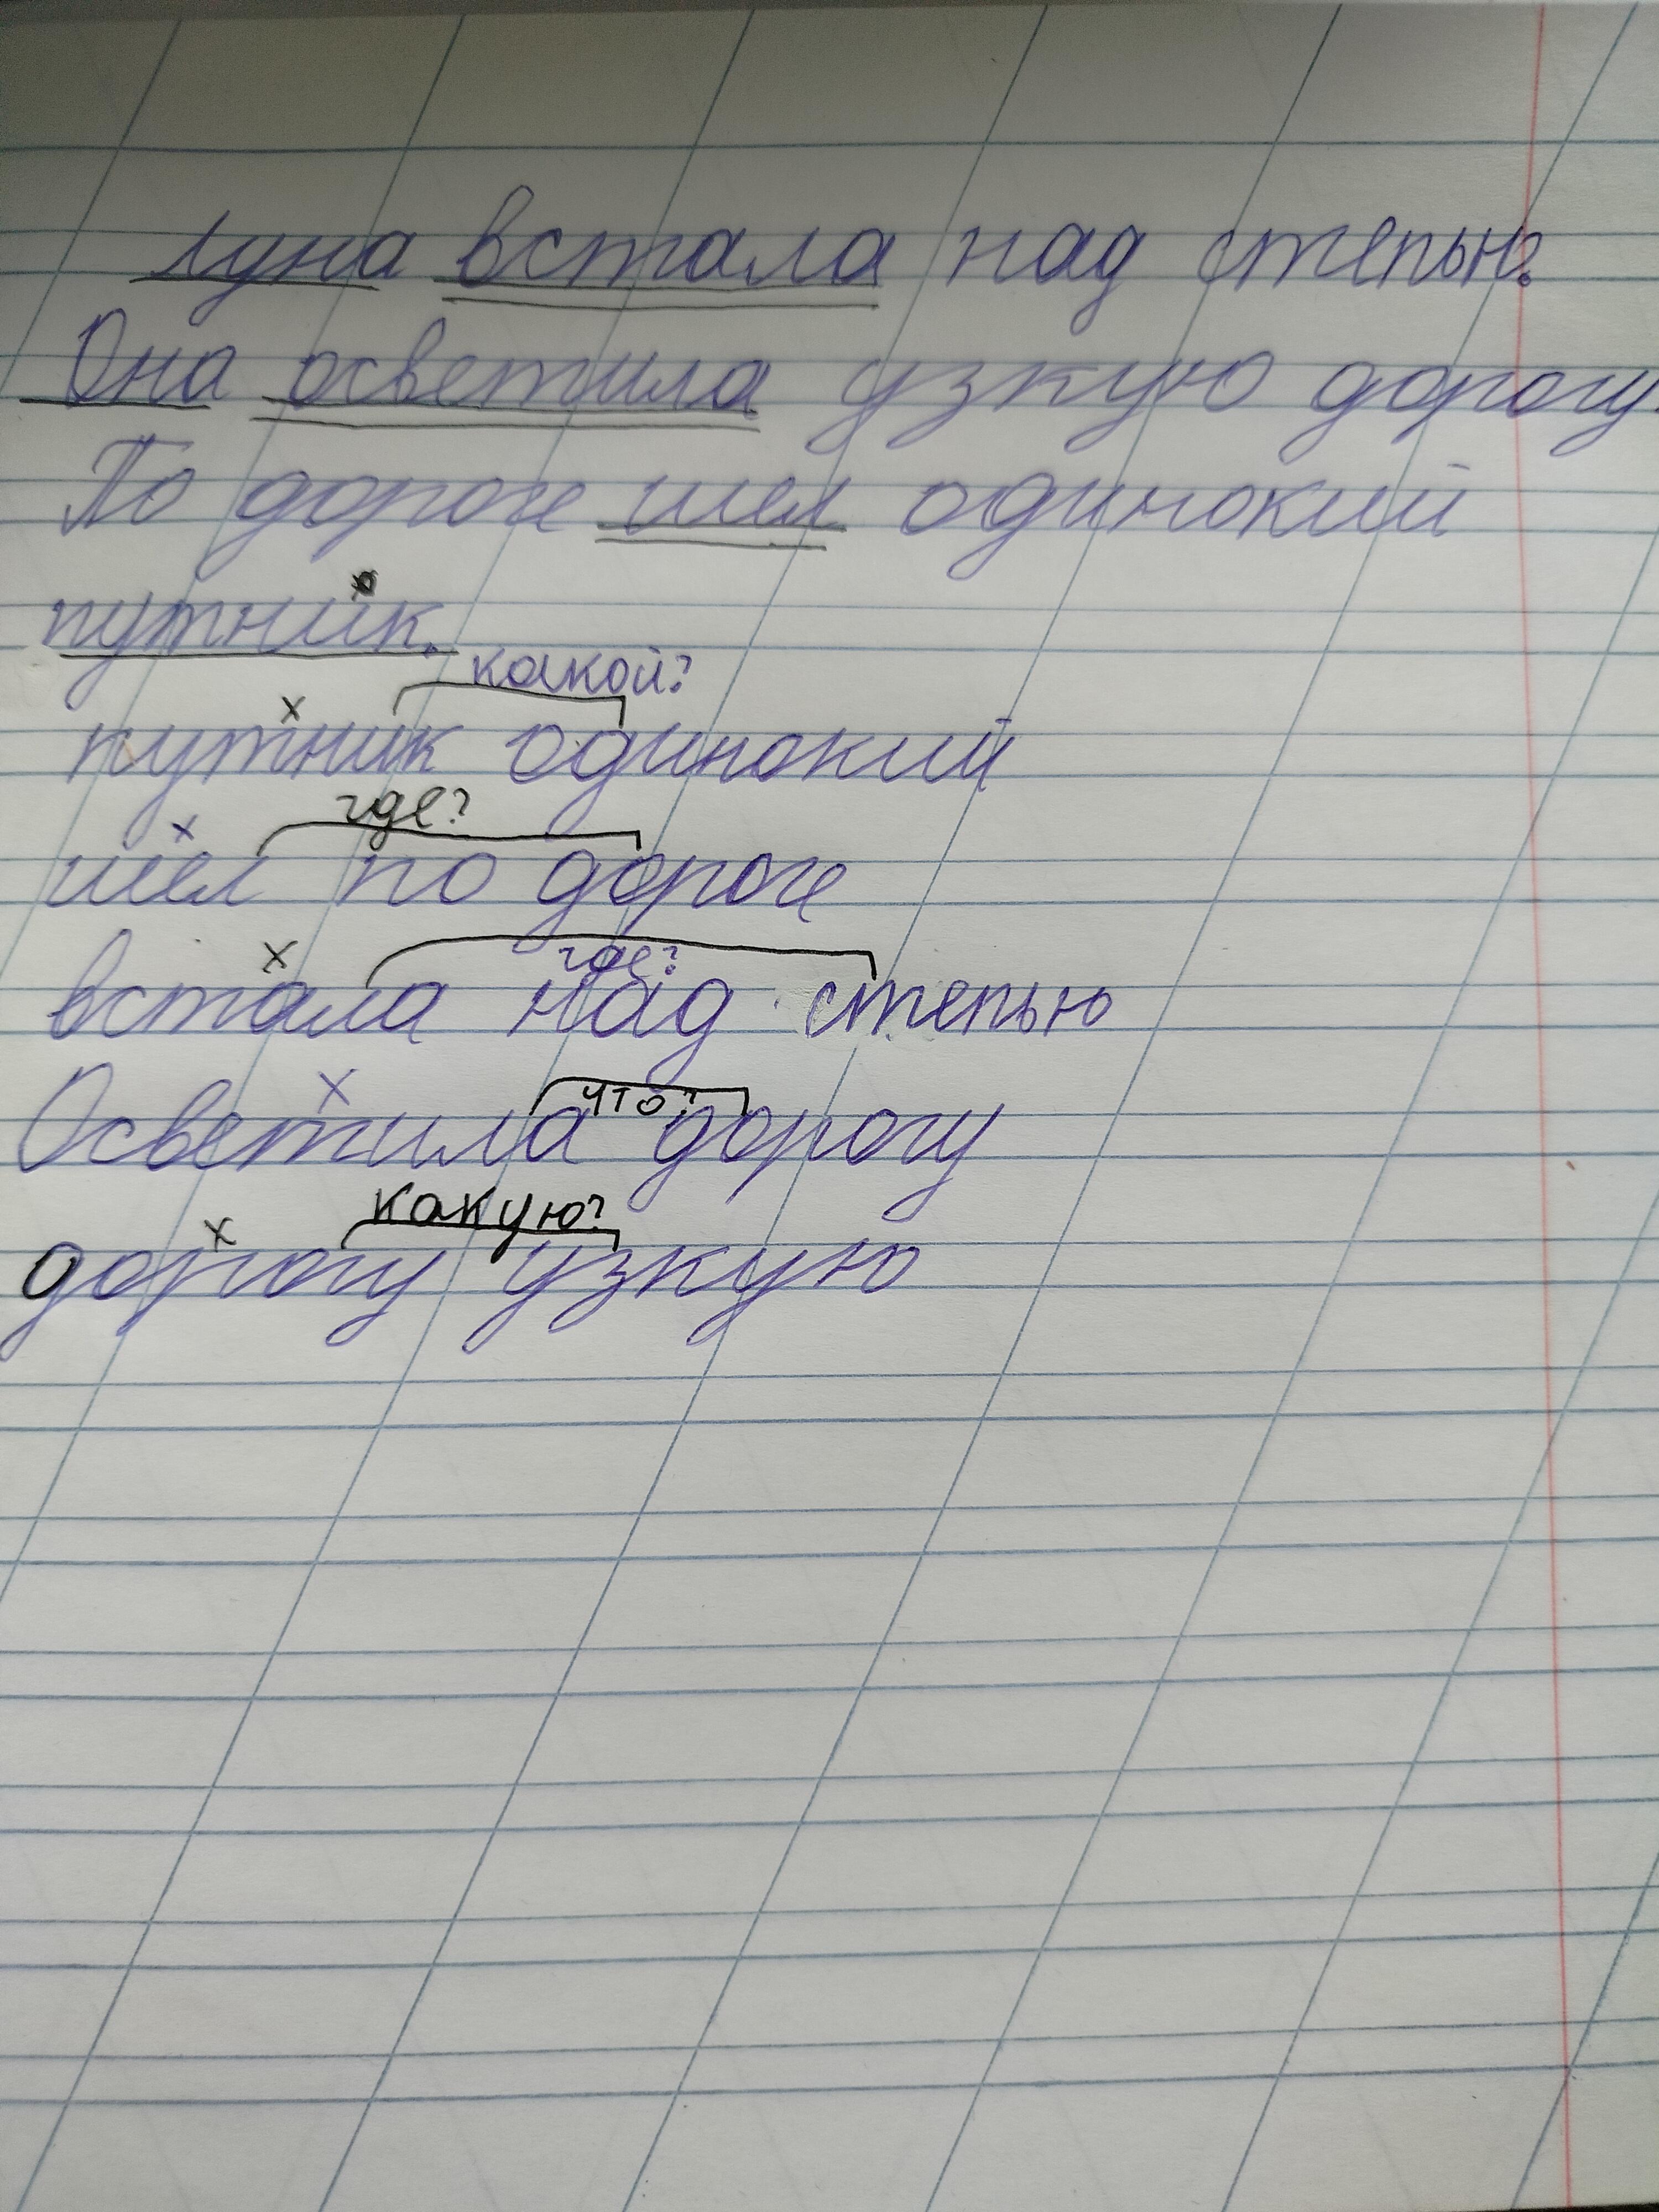 Луна встала над степью.
Она осветила узкую дорогу.
По дороге шел одинокий
путник.
какой?
путник одинокий
где?
шел по дороге
где?
встала над степью
что?
Осветила дорогу
какую?
дорогу узкую